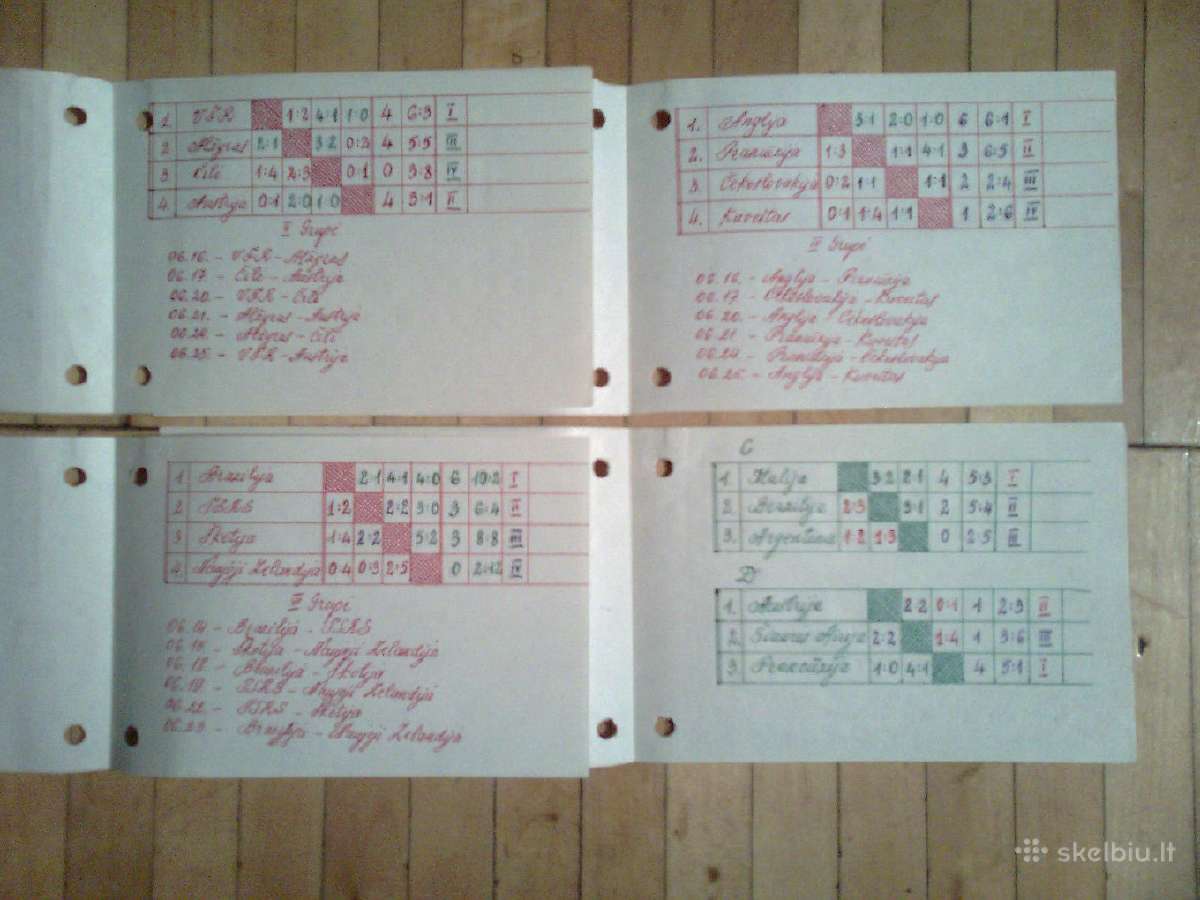 1 VFR 1:2 4:1 1:0 4 6:3 I
2 Alžyras 2:1 3:2 0:2 4 5:5 III
3 Čilė 1:4 2:3 0:1 0 3:8 IV
4 Austrija 0:1 2:0 1:0 4 3:1 II
Grupė
06.16. - VFR - Alžyras
06.17. - Čilė - Austrija
06.20. - VFR - Čilė
06.21. - Alžyras - Austrija
06.24. - Alžyras - Čilė
06.25. - VFR - Austrija
1. Anglija 3:1 2:0 1:0 6 6:1 I
2. Prancūzija 1:3 1:1 4:1 3 6:5 II
3. Čekoslovakija 0:2 1:1 1:1 2 2:4 III
4. Kuveitas 0:1 1:4 1:1 1 2:6 IV
IV Grupė
06.16. - Anglija - Prancūzija
06.17. - Čekoslovakija - Kuveitas
06.20. - Anglija - Čekoslovakija
06.21. - Prancūzija - Kuveitas
06.24. - Prancūzija - Čekoslovakija
06.25. - Anglija - Kuveitas
1 Brazilija 2:1 4:1 4:0 6 10:2 I
2 TSRS 1:2 2:2 3:0 3 6:4 II
3 Škotija 1:4 2:2 5:2 3 8:8 III
4. Naujoji Zelandija 0:4 0:3 2:5 0 2:12 IV
VI Grupė
06.14 - Brazilija - TSRS
06.15. - Škotija - Naujoji Zelandija
06.18. - Brazilija - Škotija
06.19. - TSRS - Naujoji Zelandija
06.22. - TSRS - Škotija
06.23. - Brazilija - Naujoji Zelandija
C
1. Italija 3:2 2:1 4 5:3 I
2. Brazilija 2:3 3:1 2 5:4 II
3. Argentina 1:2 1:3 0 2:5 III
D
1. Austrija 2:2 0:1 1 2:3 II
2. Šiaurės Airija 2:2 1:4 1 3:6 III
3. Prancūzija 1:0 4:1 4 5:1 I
skelbiu.lt